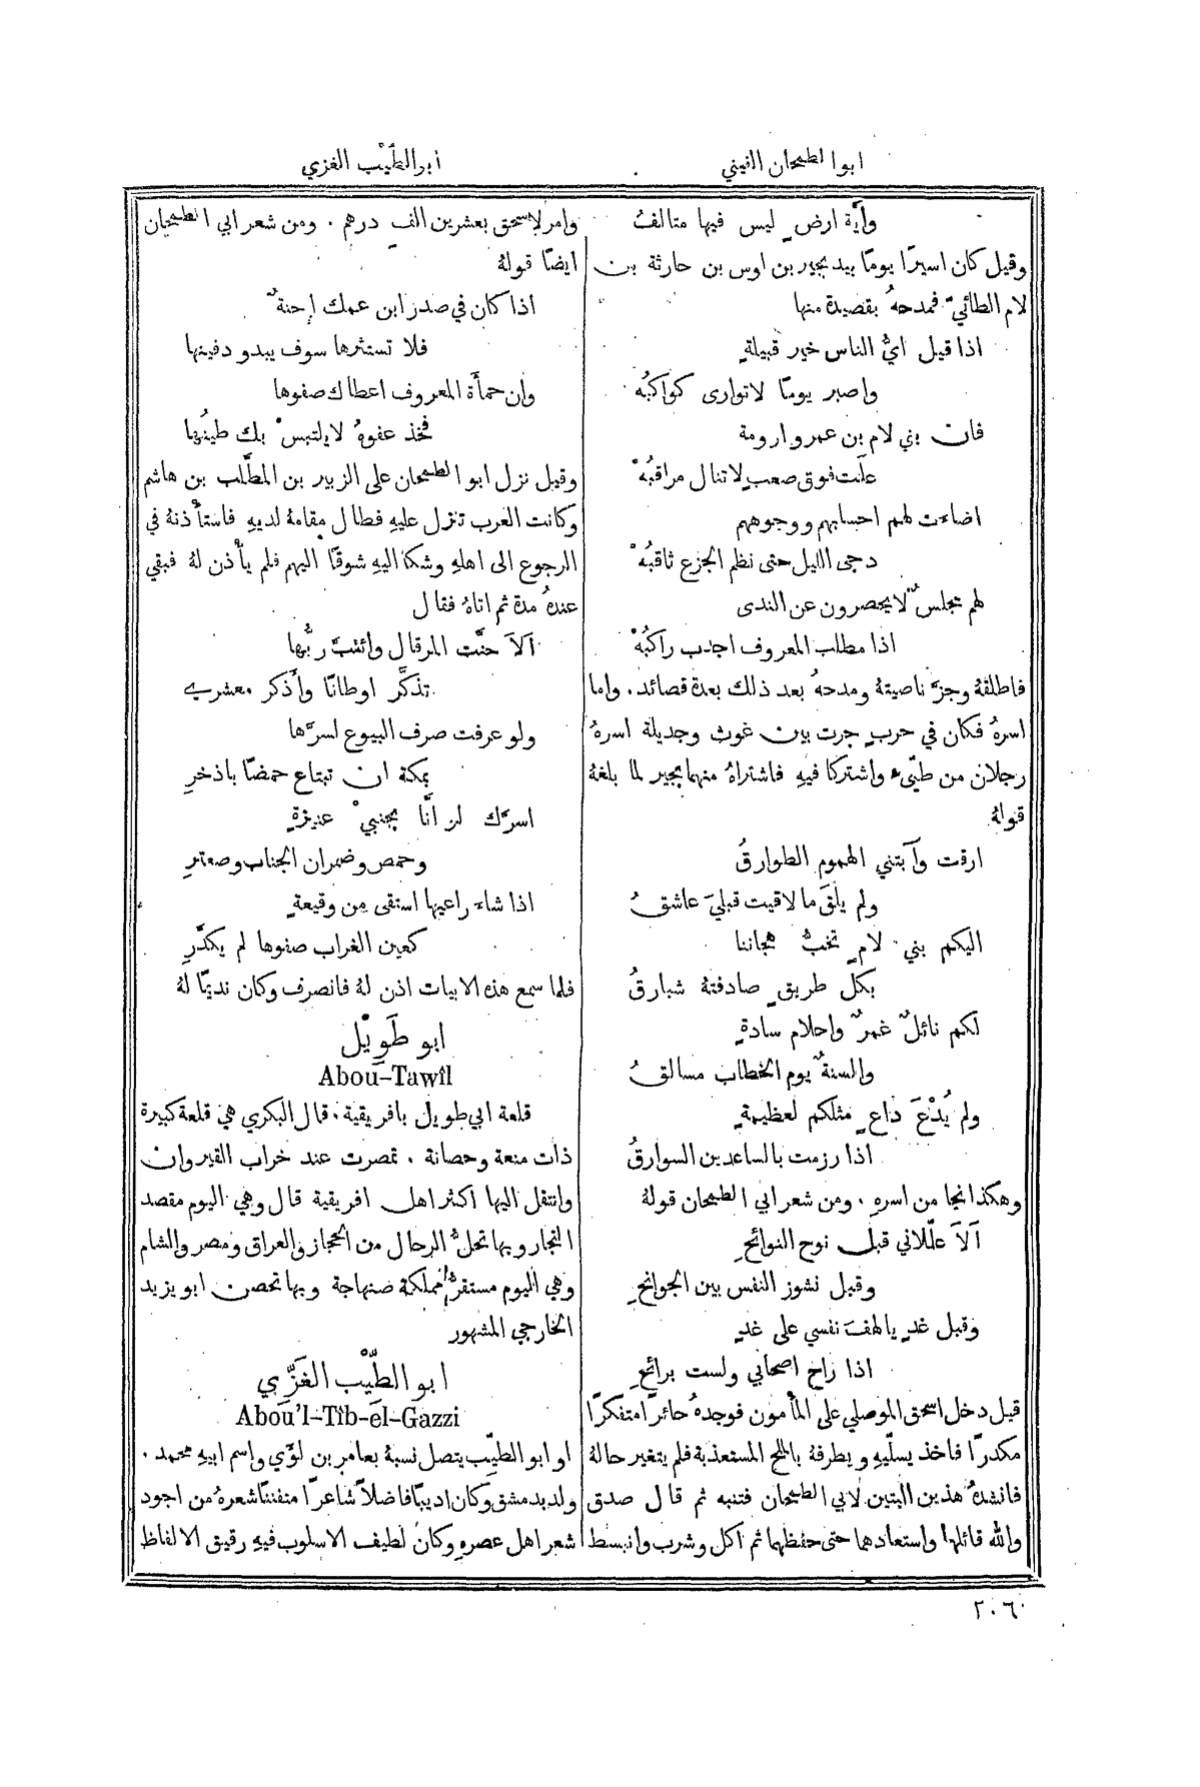 ابو الطمحان القيني
ابو الطَّيِّب الغزي
وأَيَّة ارضٍ ليس فيها متالفُ
وقيل كان اسيرًا يومًا بيد بجير بن اوس بن حارثة بن
لام الطائيّ فمدحهُ بقصيدة منها
اذا قيل ايُّ الناس خير قبيلةٍ
واصبر يومًا لا توارى كواكبُهْ
فان بني لام بن عمرو ارومة
علَت فوق صعبٍ لا تنال مراقبُهْ
اضاءت لهم احسابهم ووجوههم
دجى الليل حتى نظم الجزع ثاقبُهْ
لهم مجلسٌ لا يحصرون عن الندى
اذا مطلب المعروف اجدب راكبُهْ
فاطلقهُ وجزَّ ناصيتهُ ومدحهُ بعد ذلك بعدة قصائد. واما
اسرهُ فكان في حربٍ جرت بين غوث وجديلة اسرهُ
رجلان من طيّء واشتركا فيهِ فاشتراهُ منهما بجير لما بلغهُ
قولهُ
ارقت وآبتني الهموم الطوارقُ
ولم يلقَ ما لاقيت قبليَ عاشقُ
اليكم بني لامٍ تخبُّ هجاننا
بكل طريقٍ صادفتهُ شبارقُ
لكم نائلٌ غمرٌ واحلام سادةٍ
والسنةٌ يوم الخطاب مسالقُ
ولم يُدْعَ داعٍ مثلكم لعظيمةٍ
اذا رزمت بالساعدين السوارقُ
وهكذا نجا من اسرهِ. ومن شعر ابي الطمحان قولهُ
اَلاَ علّلاني قبل نوح النوائحِ
وقبل نشوز النفس بين الجوانحِ
وقبل غدٍ يا لهفَ نفسي على غدٍ
اذا راح اصحابي ولست برائحِ
قيل دخل اسحق الموصلي على المأمون فوجدهُ حائرًا متفكرًا
مكدرًا فاخذ يسلّيهِ ويطرفهُ بالملح المستعذبة فلم يتغير حالهُ
فانشدهُ هذين البيتين لابي الطمحان فتنبه ثم قال صدق
والله قائلها واستعادها حتى حفظهما ثم اكل وشرب وانبسط
وامر لاسحق بعشرين الف درهم. ومن شعر ابي الطمحان
ايضًا قولهُ
اذا كان في صدر ابن عمك إحنةٌ
فلا تستثرها سوف يبدو دفينها
وان حمأة المعروف اعطاك صفوها
فخذ عفوهُ لا يلتبسْ بك طينُها
وقيل نزل ابو الطمحان على الزبير بن المطَّلب بن هاشم
وكانت العرب تنزل عليهِ فطال مقامهُ لديهِ فاستأذنهُ في
الرجوع الى اهلهِ وشكا اليهِ شوقًا اليهم فلم يأذن لهُ فبقي
عندهُ مدة ثم اتاهُ فقال
اَلاَ حنَّت المرقال وائتبَّ ربُّها
تذكَّر اوطانًا وأَذكر معشري
ولو عرفت صرف البيوع لسرَّها
بمكة ان تبتاع حمضًا باذخرِ
اسرّك لو انَّا بجنبيْ عنيزةٍ
وحمص وضمران الجناب وصعترِ
اذا شاء راعيها استقى من وقيعةٍ
كعين الغراب صفوها لم يكدَّرِ
فلما سمع هذه الابيات اذن لهُ فانصرف وكان نديمًا لهُ
ابو طَوِيْل
Abou-Tawîl
قلعة ابي طويل بافريقية. قال البكري هي قلعة كبيرة
ذات منعة وحصانة. تمصرت عند خراب القيروان
وانتقل اليها اكثر اهل افريقية قال وهي اليوم مقصد
التجار وبها تحلُّ الرحال من الحجاز والعراق ومصر والشام
وهي اليوم مستقرُّ مملكة صنهاجة وبها تحصن ابو يزيد
الخارجي المشهور
ابو الطَّيِّب الغَزِّي
Abou'l-Tîb-el-Gazzi
او ابو الطيّب يتصل نسبهُ بعامر بن لؤي واسم ابيهِ محمد.
ولد بدمشق وكان اديبًا فاضلاً شاعرًا متفننًا شعرهُ من اجود
شعر اهل عصرهِ وكان لطيف الاسلوب فيهِ رقيق الالفاظ
٢٠٦